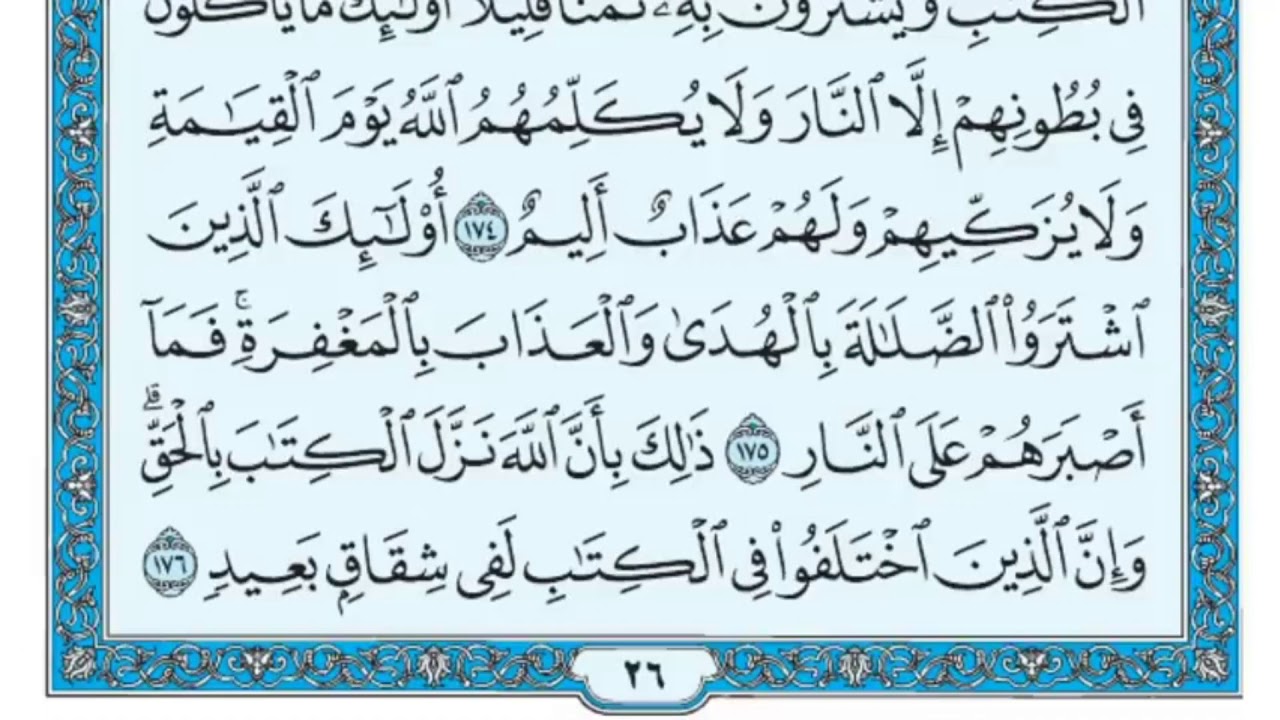 ٱلۡكِتَٰبِ وَيَشۡتَرُونَ بِهِۦ ثَمَنٗا قَلِيلًا أُوْلَٰٓئِكَ مَا يَأۡكُلُونَ
فِي بُطُونِهِمۡ إِلَّا ٱلنَّارَ وَلَا يُكَلِّمُهُمُ ٱللَّهُ يَوۡمَ ٱلۡقِيَٰمَةِ
وَلَا يُزَكِّيهِمۡ وَلَهُمۡ عَذَابٌ أَلِيمٌ ١٧٤ أُوْلَٰٓئِكَ ٱلَّذِينَ
ٱشۡتَرَوُاْ ٱلضَّلَٰلَةَ بِٱلۡهُدَىٰ وَٱلۡعَذَابَ بِٱلۡمَغۡفِرَةِۚ فَمَآ
أَصۡبَرَهُمۡ عَلَى ٱلنَّارِ ١٧٥ ذَٰلِكَ بِأَنَّ ٱللَّهَ نَزَّلَ ٱلۡكِتَٰبَ بِٱلۡحَقِّۗ
وَإِنَّ ٱلَّذِينَ ٱخۡتَلَفُواْ فِي ٱلۡكِتَٰبِ لَفِي شِقَاقِۭ بَعِيدٖ ١٧٦
٢٦